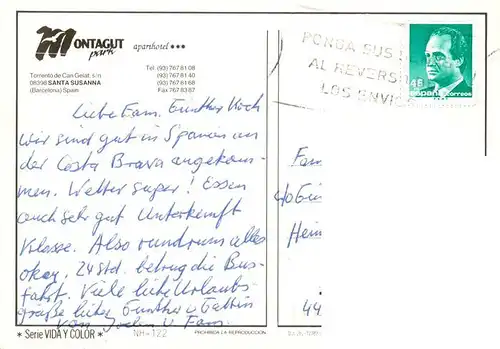 MONTAGUT
park
aparthotel ***
Torrente de Can Gelat, s/n
08398 SANTA SUSANNA
(Barcelona) Spain
Tel. (93) 767 81 08
(93) 767 81 40
(93) 767 81 68
Fax 767 83 87
PONGA SUS
AL REVERS
LOS ENVI
48
españa correos
Liebe Fam. Gunther Koch
Wir sind gut in Spanien an
der Costa Brava angekom-
men. Wetter super! Essen
auch sehr gut Unterkunft
Klasse. Also rundrum alles
okay. 24 Std. betrug die Bus-
fahrt. Viele liebe Urlaubs-
grüße lieber Gunther u Gattin
von Jochen u. Fam.
Fam
Hein
44
* Serie VIDA Y COLOR *
NH-122
PROHIBIDA LA REPRODUCCIÓN